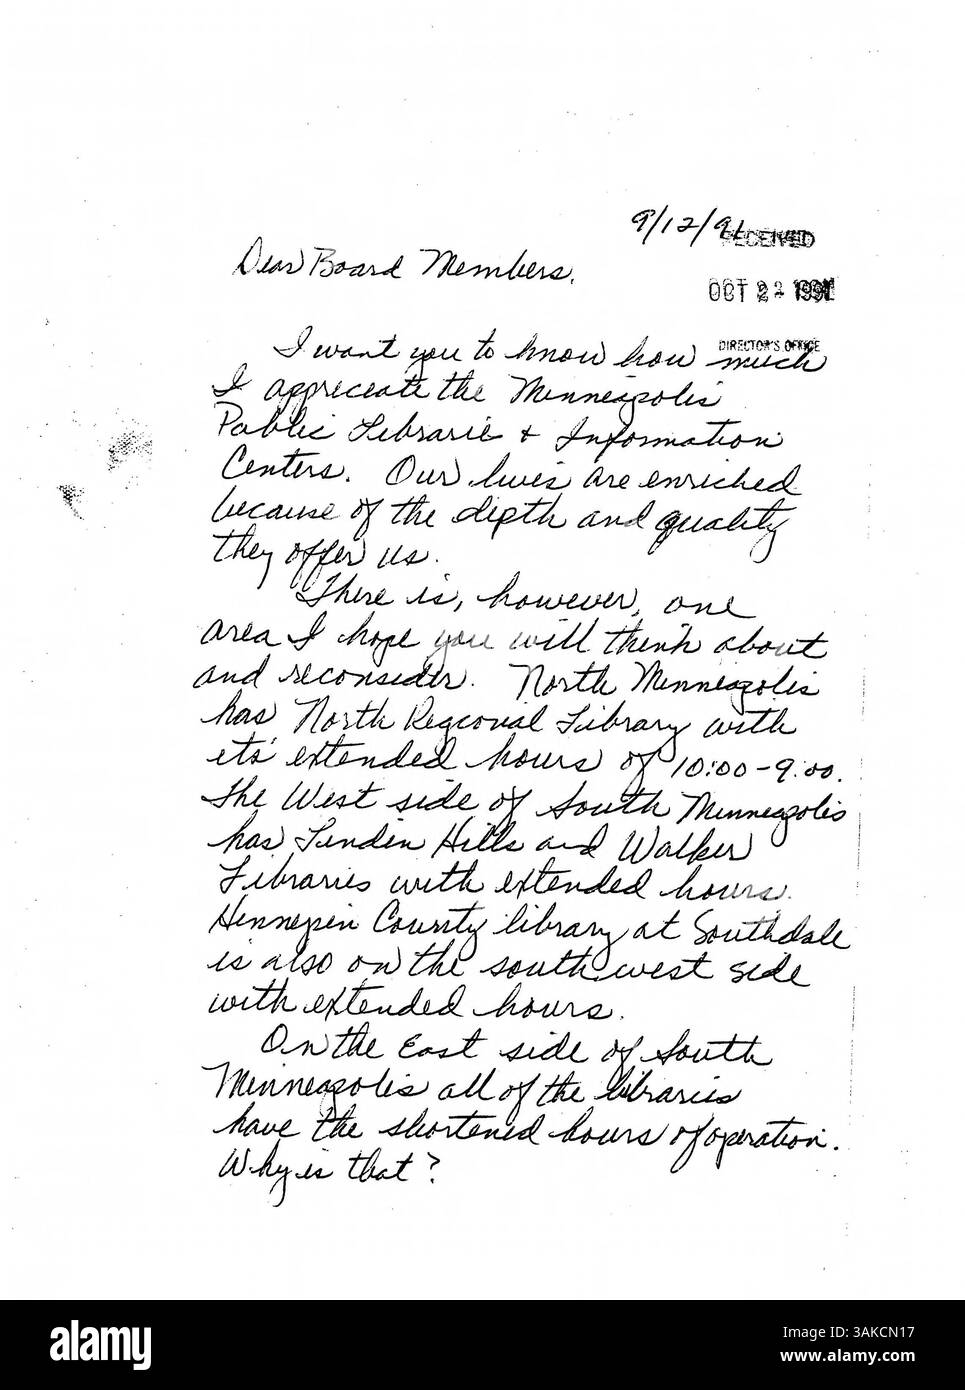 9/12/91
RECEIVED
Dear Board Members,
OCT 23 1991
DIRECTOR'S OFFICE
I want you to know how much
I appreciate the Minneapolis
Public Librarie & Information
Centers. Our lives are enriched
because of the depth and quality
they offer us.
There is, however, one
area I hope you will think about
and reconsider. North Minneapolis
has North Regional Library with
its' extended hours of 10:00-9:00.
The West side of South Minneapolis
has Linden Hills and Walker
Libraries with extended hours.
Hennepin County library at Southdale
is also on the southwest side
with extended hours.
On the East side of South
Minneapolis all of the libraries
have the shortened hours of operation.
Why is that?
alamy
Image ID: 3AKCN17
www.alamy.com